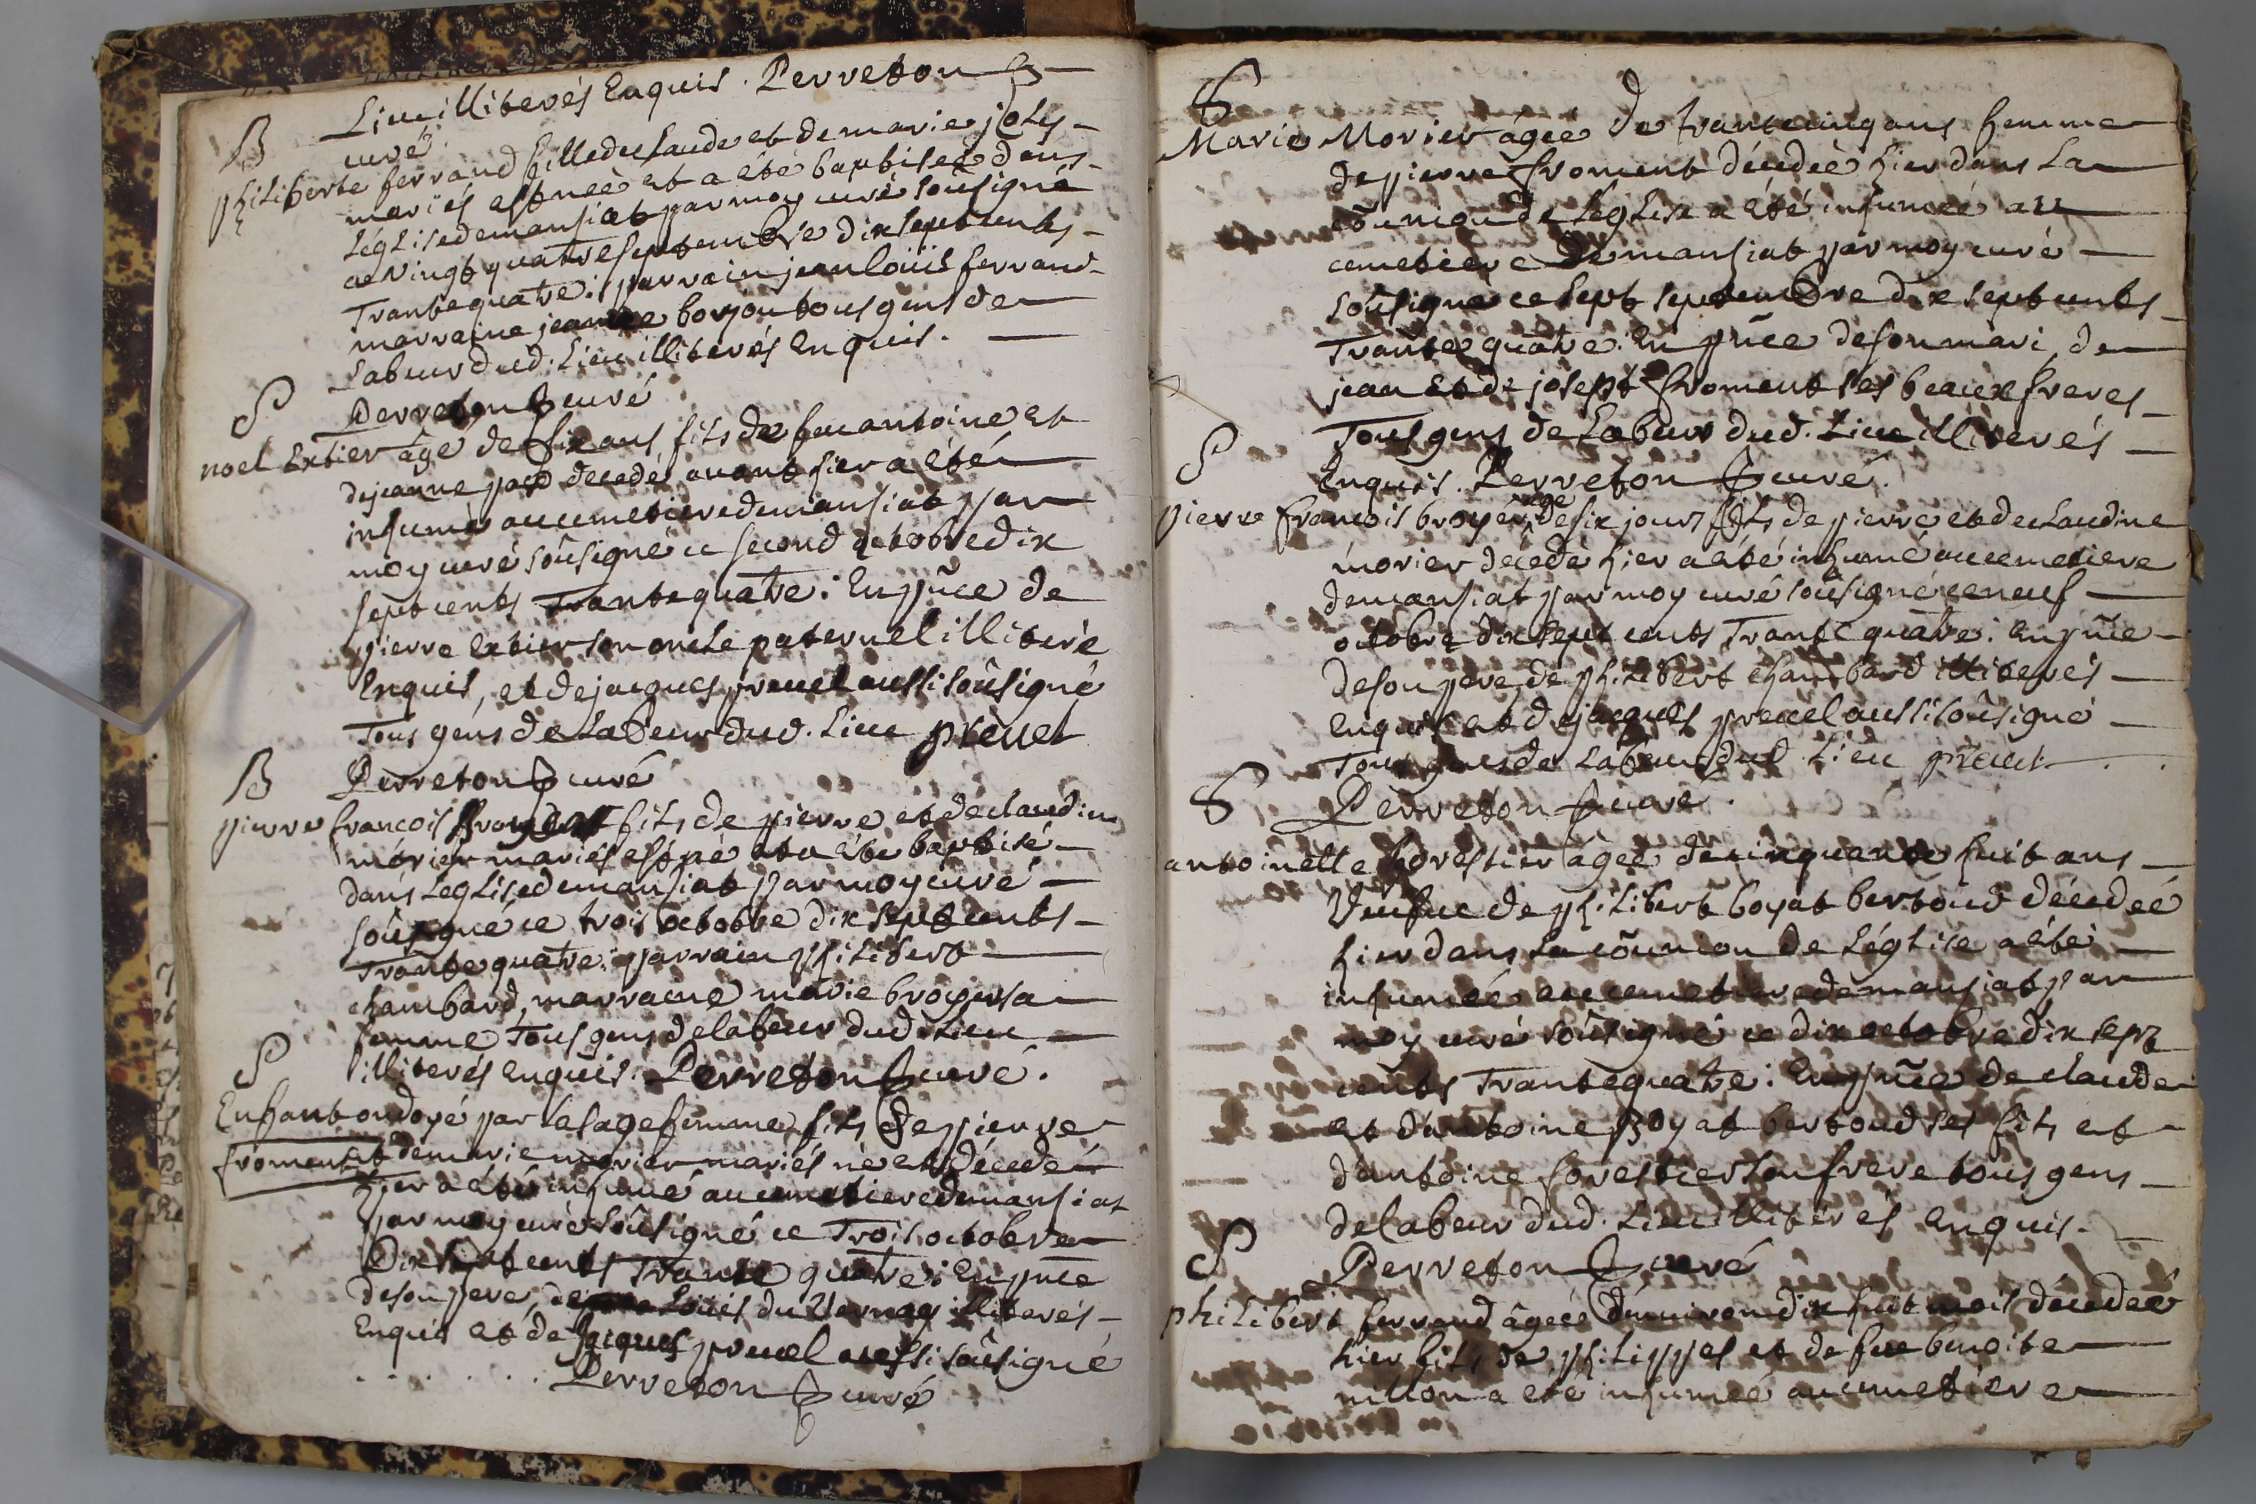 Lieu illiterés Enquis. Perreton
curé.
B
philiberte ferrand fille de claude et de marie joly
mariés est neé et a eté baptiseé dans
léglise de mansiat par moy curé soûsigné
ce vingt quatre septembre dix sept cents
Trante quatre: parrain jean loüis ferrand
marraine jeanne borjon tous gens de
Labeur dud. Lieu illiterés Enquis.
Perreton curé
S
noel Extier âgé de six ans fils de feu antoine et
de jeanne decedé avant hier a eté
inhumé au cemetiere de mansiat par
moy curé soûsigné ce second octobre dix
sept cents Trante quatre: En pñce de
pierre Extier son oncle paternel illiteré
Enquis, et de jacques preuel aussi soûsigné
Tous gens de Labeur dud. Lieu preuel
Perreton curé
B
pierre francois fils de pierre et de claudine
morier mariés est né et a eté baptisé
dans Leglise de mansiat par moy curé
soûsigné ce trois octobre dix sept cents
Trante quatre: parrain philibert
chambard, marraine marie broyer sa
femme Tous gens de labeur dud. Lieu
illiterés enquis. Perreton curé.
S
Enfant ondoyé par la sage femme fils de pierre
froment et de marie morier mariés né et décedé
hier a eté inhumé au cemetiere de mansiat
par moy curé soûsigné ce Trois octobre
Dix sept cents Trante quatre: En pñce
de son pere, de Loüis du Vernay illiterés
Enquis et de Jacques preuel aussi soûsigné
Perreton curé
S
Marie Morier âgeé de trante cinq ans femme
de pierre froment décedeé hier dans La
cõmunion de Léglise a eté inhumeé au
cemetiere de mansiat par moy curé
soûsigné ce sept septembre dix sept cents
Trante quatre: En pñce de son mari, de
jean et de joseph froment ses beaux freres
Tous gens de Labeur dud. Lieu illiterés
Enquis. Perreton curé.
S
pierre francois broyer, âgé de six jours fils de pierre et de claudine
morier décedé hier a eté inhumé au cemetiere
de mansiat par moy curé soûsigné ce neuf
octobre dix sept cents Trante quatre: En pñce
de son pere, de philibert chambard illiterés
enquis et de jacques preuel aussi soûsigné
Tous gens de Labeur dud. Lieu preuel
Perreton curé.
S
antoinette forestier âgeé de cinquante huit ans
Veufue de philibert boyat bertoud décedeé
hier dans La cõmunion de Léglise a eté
inhumeé au cemetiere de mansiat par
moy curé soûsigné ce dix octobre dix sept
cents Trante quatre: En pñce de claude
et d'antoine Boyat bertoud ses fils et
d'antoine forestier son frere tous gens
de labeur dud. Lieu illiterés Enquis.
Perreton curé
S
philibert ferrand âgeé d'enuiron dix huit mois décedeé
hier fils de philippes et de feue benoite
millon a eté inhumeé au cemetiere